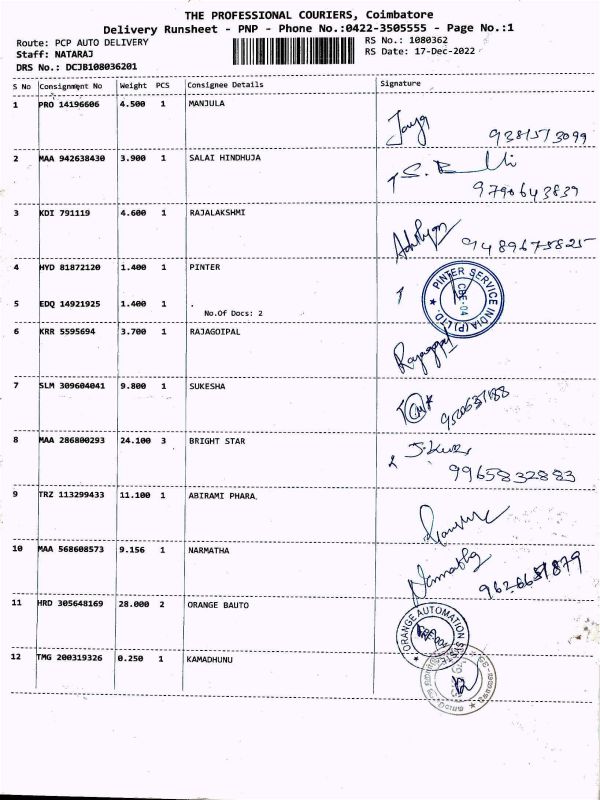 THE PROFESSIONAL COURIERS, Coimbatore
Delivery Runsheet - PNP - Phone No.:0422-3505555 - Page No.:1
Route: PCP AUTO DELIVERY
Staff: NATARAJ
DRS No.: DCJB108036201
RS No.: 1080362
RS Date: 17-Dec-2022
S No Consignment No Weight PCS Consignee Details Signature
1 PRO 14196606 4.500 1 MANJULA
9381573099
2 MAA 942638430 3.900 1 SALAI HINDHUJA
9790643839
3 KDI 791119 4.600 1 RAJALAKSHMI
9489675825
4 HYD 81872120 1.400 1 PINTER
PINTER SERVICE INDIA (P) LTD
CBE-04
5 EDQ 14921925 1.400 1 .
No.Of Docs: 2
6 KRR 5595694 3.700 1 RAJAGOIPAL
Rajagopal
7 SLM 309604041 9.800 1 SUKESHA
8 MAA 286800293 24.100 3 BRIGHT STAR
9965832883
9 TRZ 113299433 11.100 1 ABIRAMI PHARA.
10 MAA 568608573 9.156 1 NARMATHA
Narmatha
11 HRD 305648169 28.000 2 ORANGE BAUTO
ORANGE AUTOMATION SYSTEM
12 TMG 200319326 0.250 1 KAMADHUNU